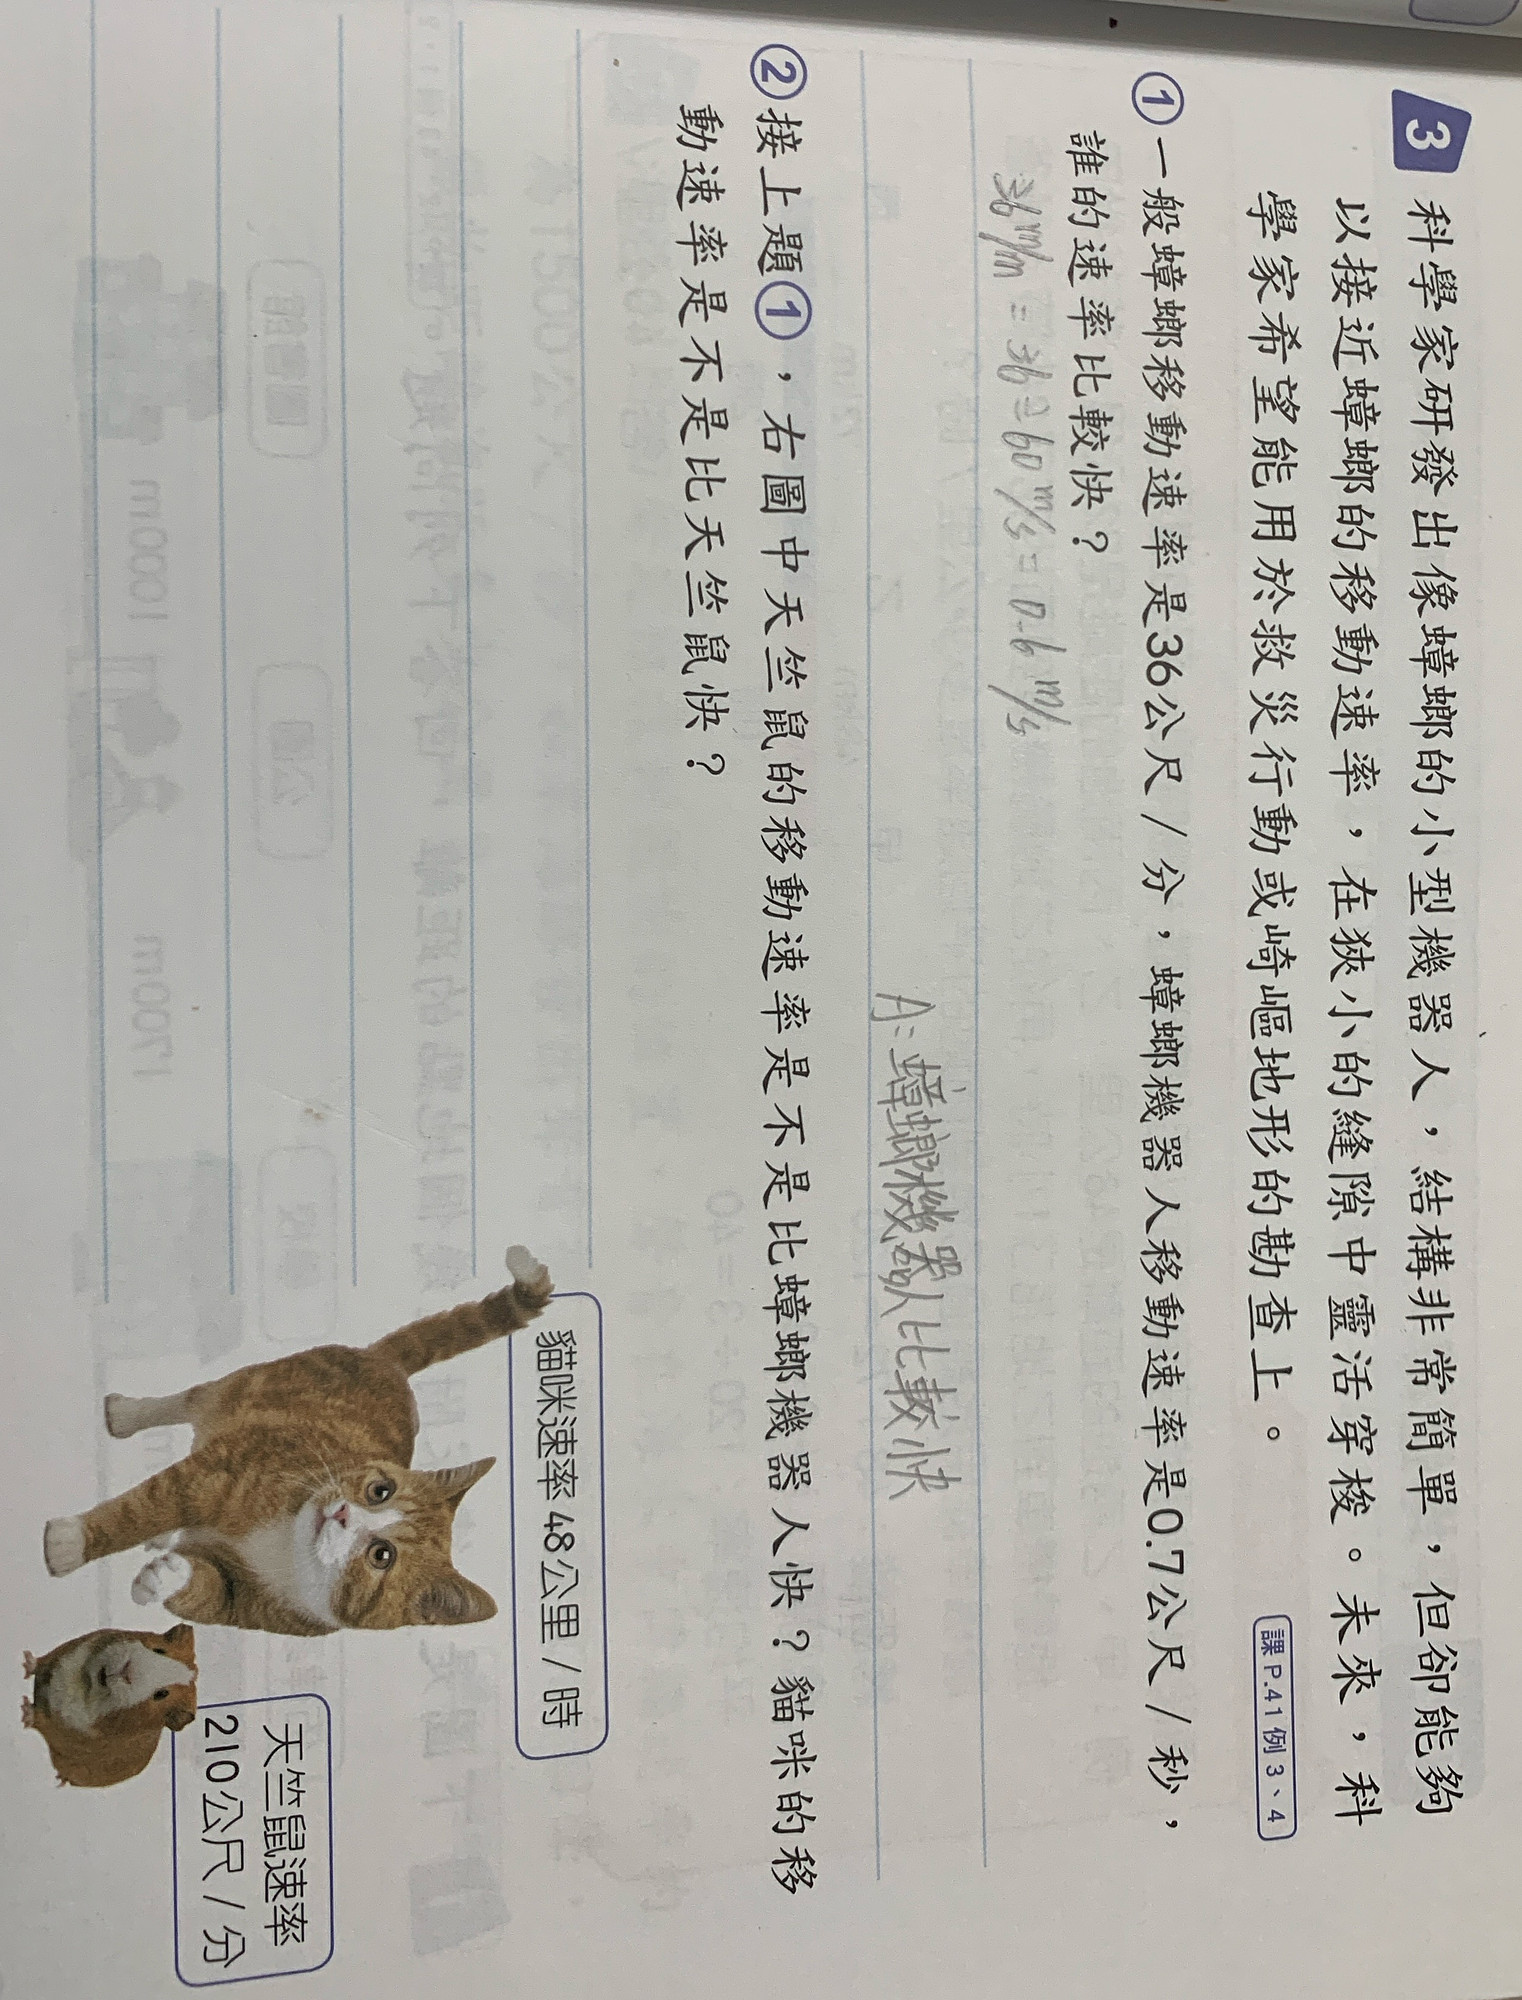 3 科學家研發出像蟑螂的小型機器人，結構非常簡單，但卻能夠
以接近蟑螂的移動速率，在狹小的縫隙中靈活穿梭。未來，科
學家希望能用於救災行動或崎嶇地形的勘查上。
課 P.41 例 3、4
①一般蟑螂移動速率是36公尺/分，蟑螂機器人移動速率是0.7公尺/秒，
誰的速率比較快？
36 m/m = 36÷60 m/s = 0.6 m/s
A：蟑螂機器人比較快
②接上題①，右圖中天竺鼠的移動速率是不是比蟑螂機器人快？貓咪的移
動速率是不是比天竺鼠快？
貓咪速率 48公里/時
天竺鼠速率
210公尺/分